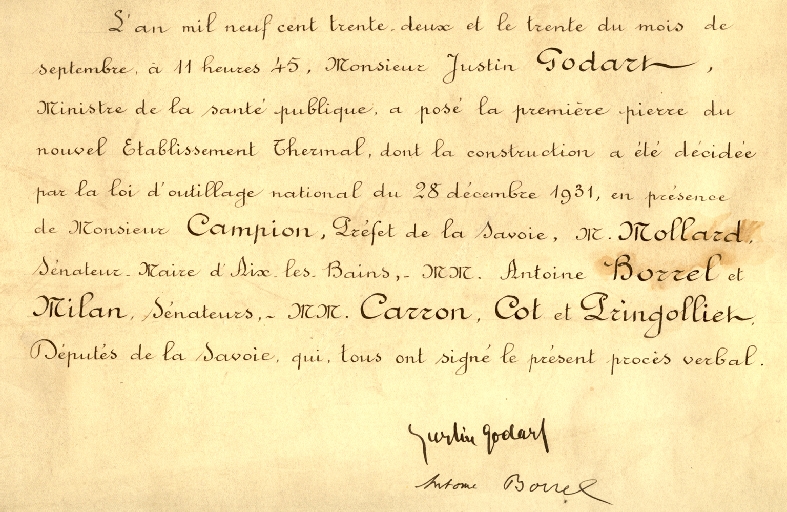 L'an mil neuf cent trente-deux et le trente du mois de
septembre, à 11 heures 45, Monsieur Justin Godart,
Ministre de la santé publique, a posé la première pierre du
nouvel Etablissement Thermal, dont la construction a été décidée
par la loi d'outillage national du 28 décembre 1931, en présence
de Monsieur Campion, Préfet de la Savoie, M. Mollard,
Sénateur-Maire d'Aix-les-Bains,- MM. Antoine Borrel et
Milan, Sénateurs,- MM. Carron, Cot et Pringolliet,
Députés de la Savoie, qui, tous ont signé le présent procès verbal.
Justin Godart
Antoine Borrel